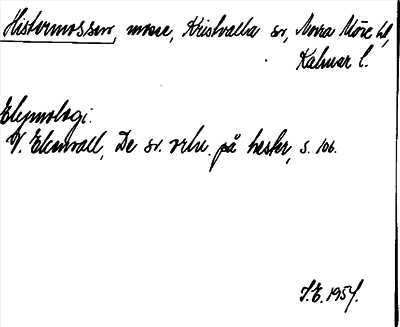 Histormossen, mosse, Kristvalla sn, Norra Möre hd,
Kalmar l.
Etymologi.
V. Ekenvall, De sv. ortn. på hester, s. 106.
I.E. 1957.